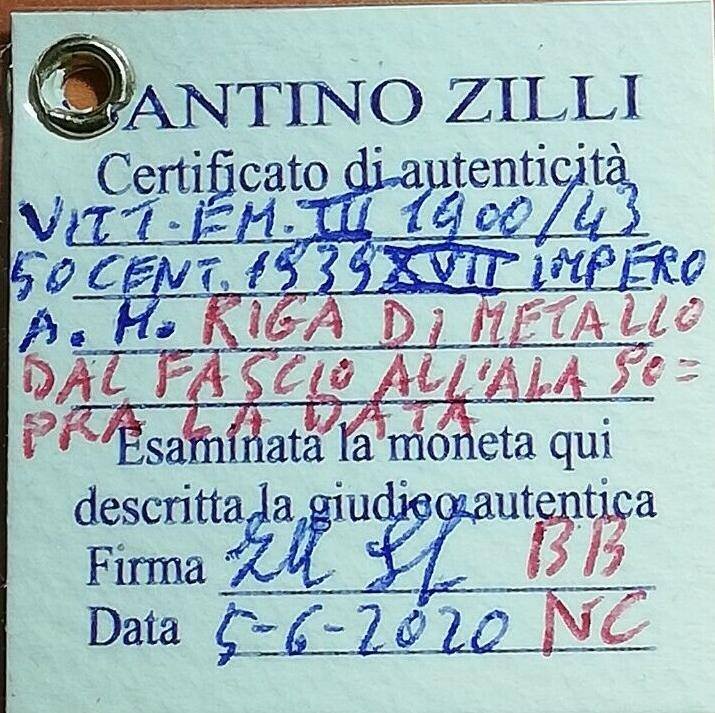 ANTINO ZILLI
Certificato di autenticità
VITT. EM. III 1900/43
50 CENT. 1939 XVII IMPERO
A. M. RIGA DI METALLO
DAL FASCIO ALL'ALA SO=
PRA LA DATA
Esaminata la moneta qui
descritta la giudico autentica
Firma BB
Data 5-6-2020 NC